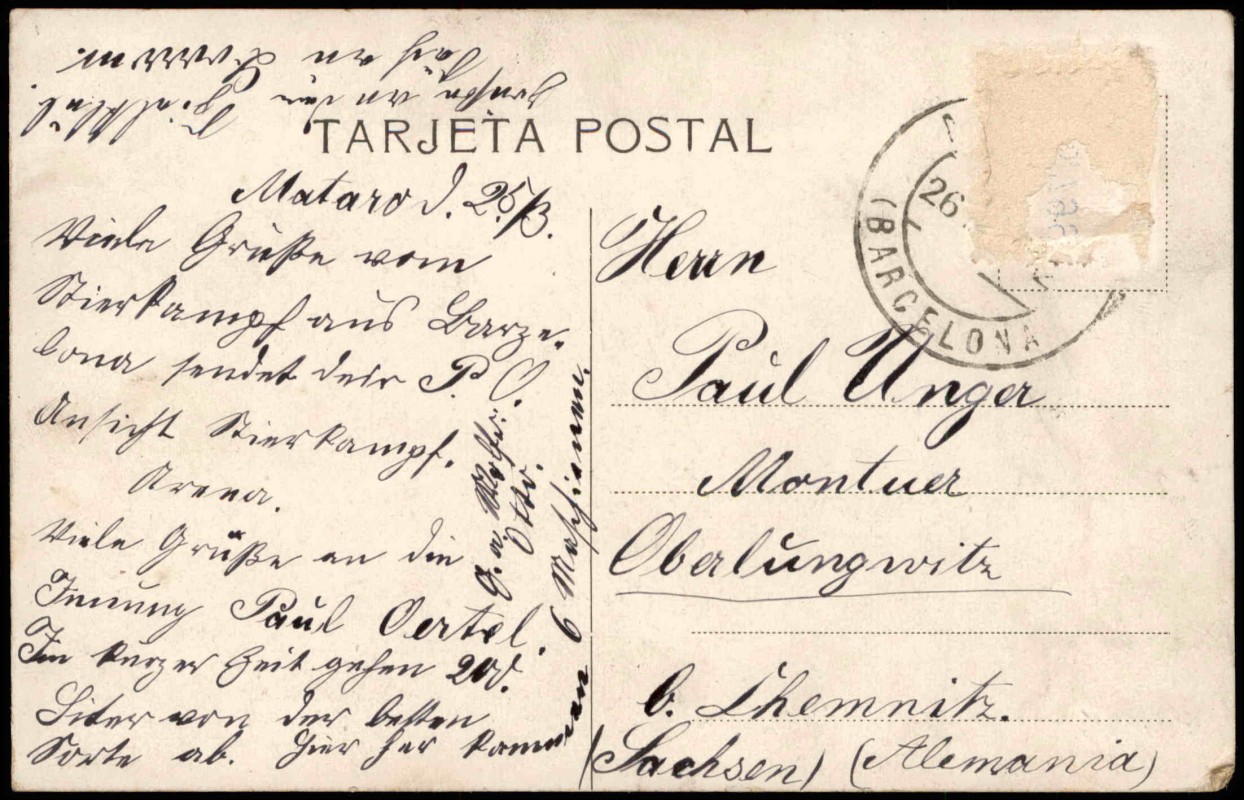 TARJETA POSTAL
Mataro d. 25/3.
Viele Grüße vom
Stierkampf aus Barze-
lona sendet deir P. O.
Ansicht Stierkampf.
Arena.
Viele Grüße an die
Innung Paul Oertel.
In kurzer Zeit gehen 200.
Liter von der besten
Sorte ab. Hier her kommen
an 6 Maschienen.
G. a.
Otto.
Herrn
Paul Unger
Montuer
Oberlungwitz
b. Chemnitz.
(Sachsen) (Alemania)
26
(BARCELONA